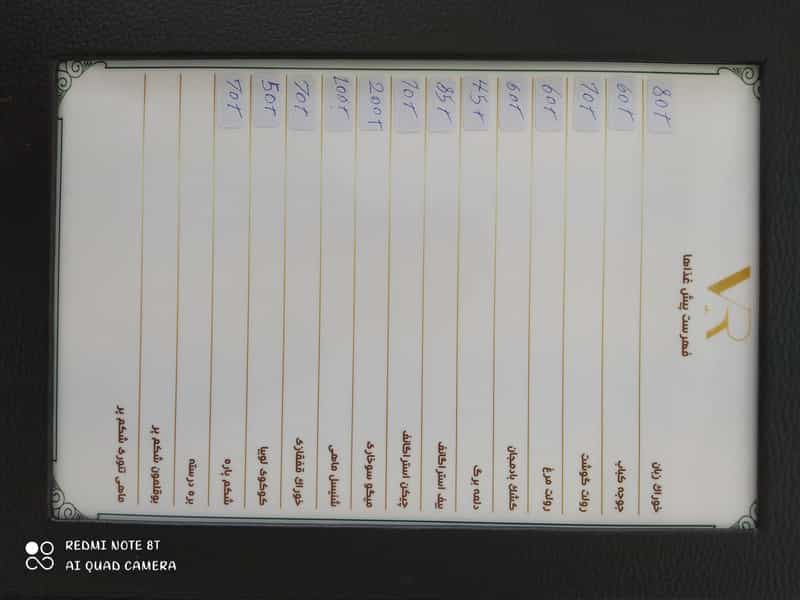 VR
فهرست پیش غذاها
خوراک زبان 80T
جوجه کباب 60T
رولت گوشت 70T
رولت مرغ 60T
کشک بادمجان 60T
دلمه برگ 45T
بیف استراگانف 85T
چیکن استراگانف 70T
میگو سوخاری 200T
شنیسل ماهی 100T
خوراک قفقازی 70T
کوکوی لوبیا 50T
شکم پاره 70T
بره درسته
بوقلمون شکم پر
ماهی تنوری شکم پر
REDMI NOTE 8T
AI QUAD CAMERA